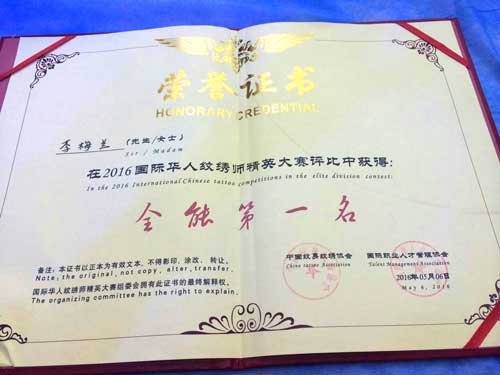 荣誉证书
HONORARY CREDENTIAL
李梅兰 (先生/女士)
Sir / Madam
在2016国际华人纹绣师精英大赛评比中获得:
In the 2016 International Chinese tattoo competitions in the elite division contest:
全能第一名
中国纹身纹绣协会 国际职业人才管理协会
China tattoo Association Talent Management Association
备注:本证书以正本为有效文本,不得影印、涂改、转让。
Note, the original, not copy, alter, transfer.
2016年05月06日
国际华人纹绣师精英大赛组委会拥有此证书的最终解释权。
May 6, 2016
The organizing committee has the right to explain.